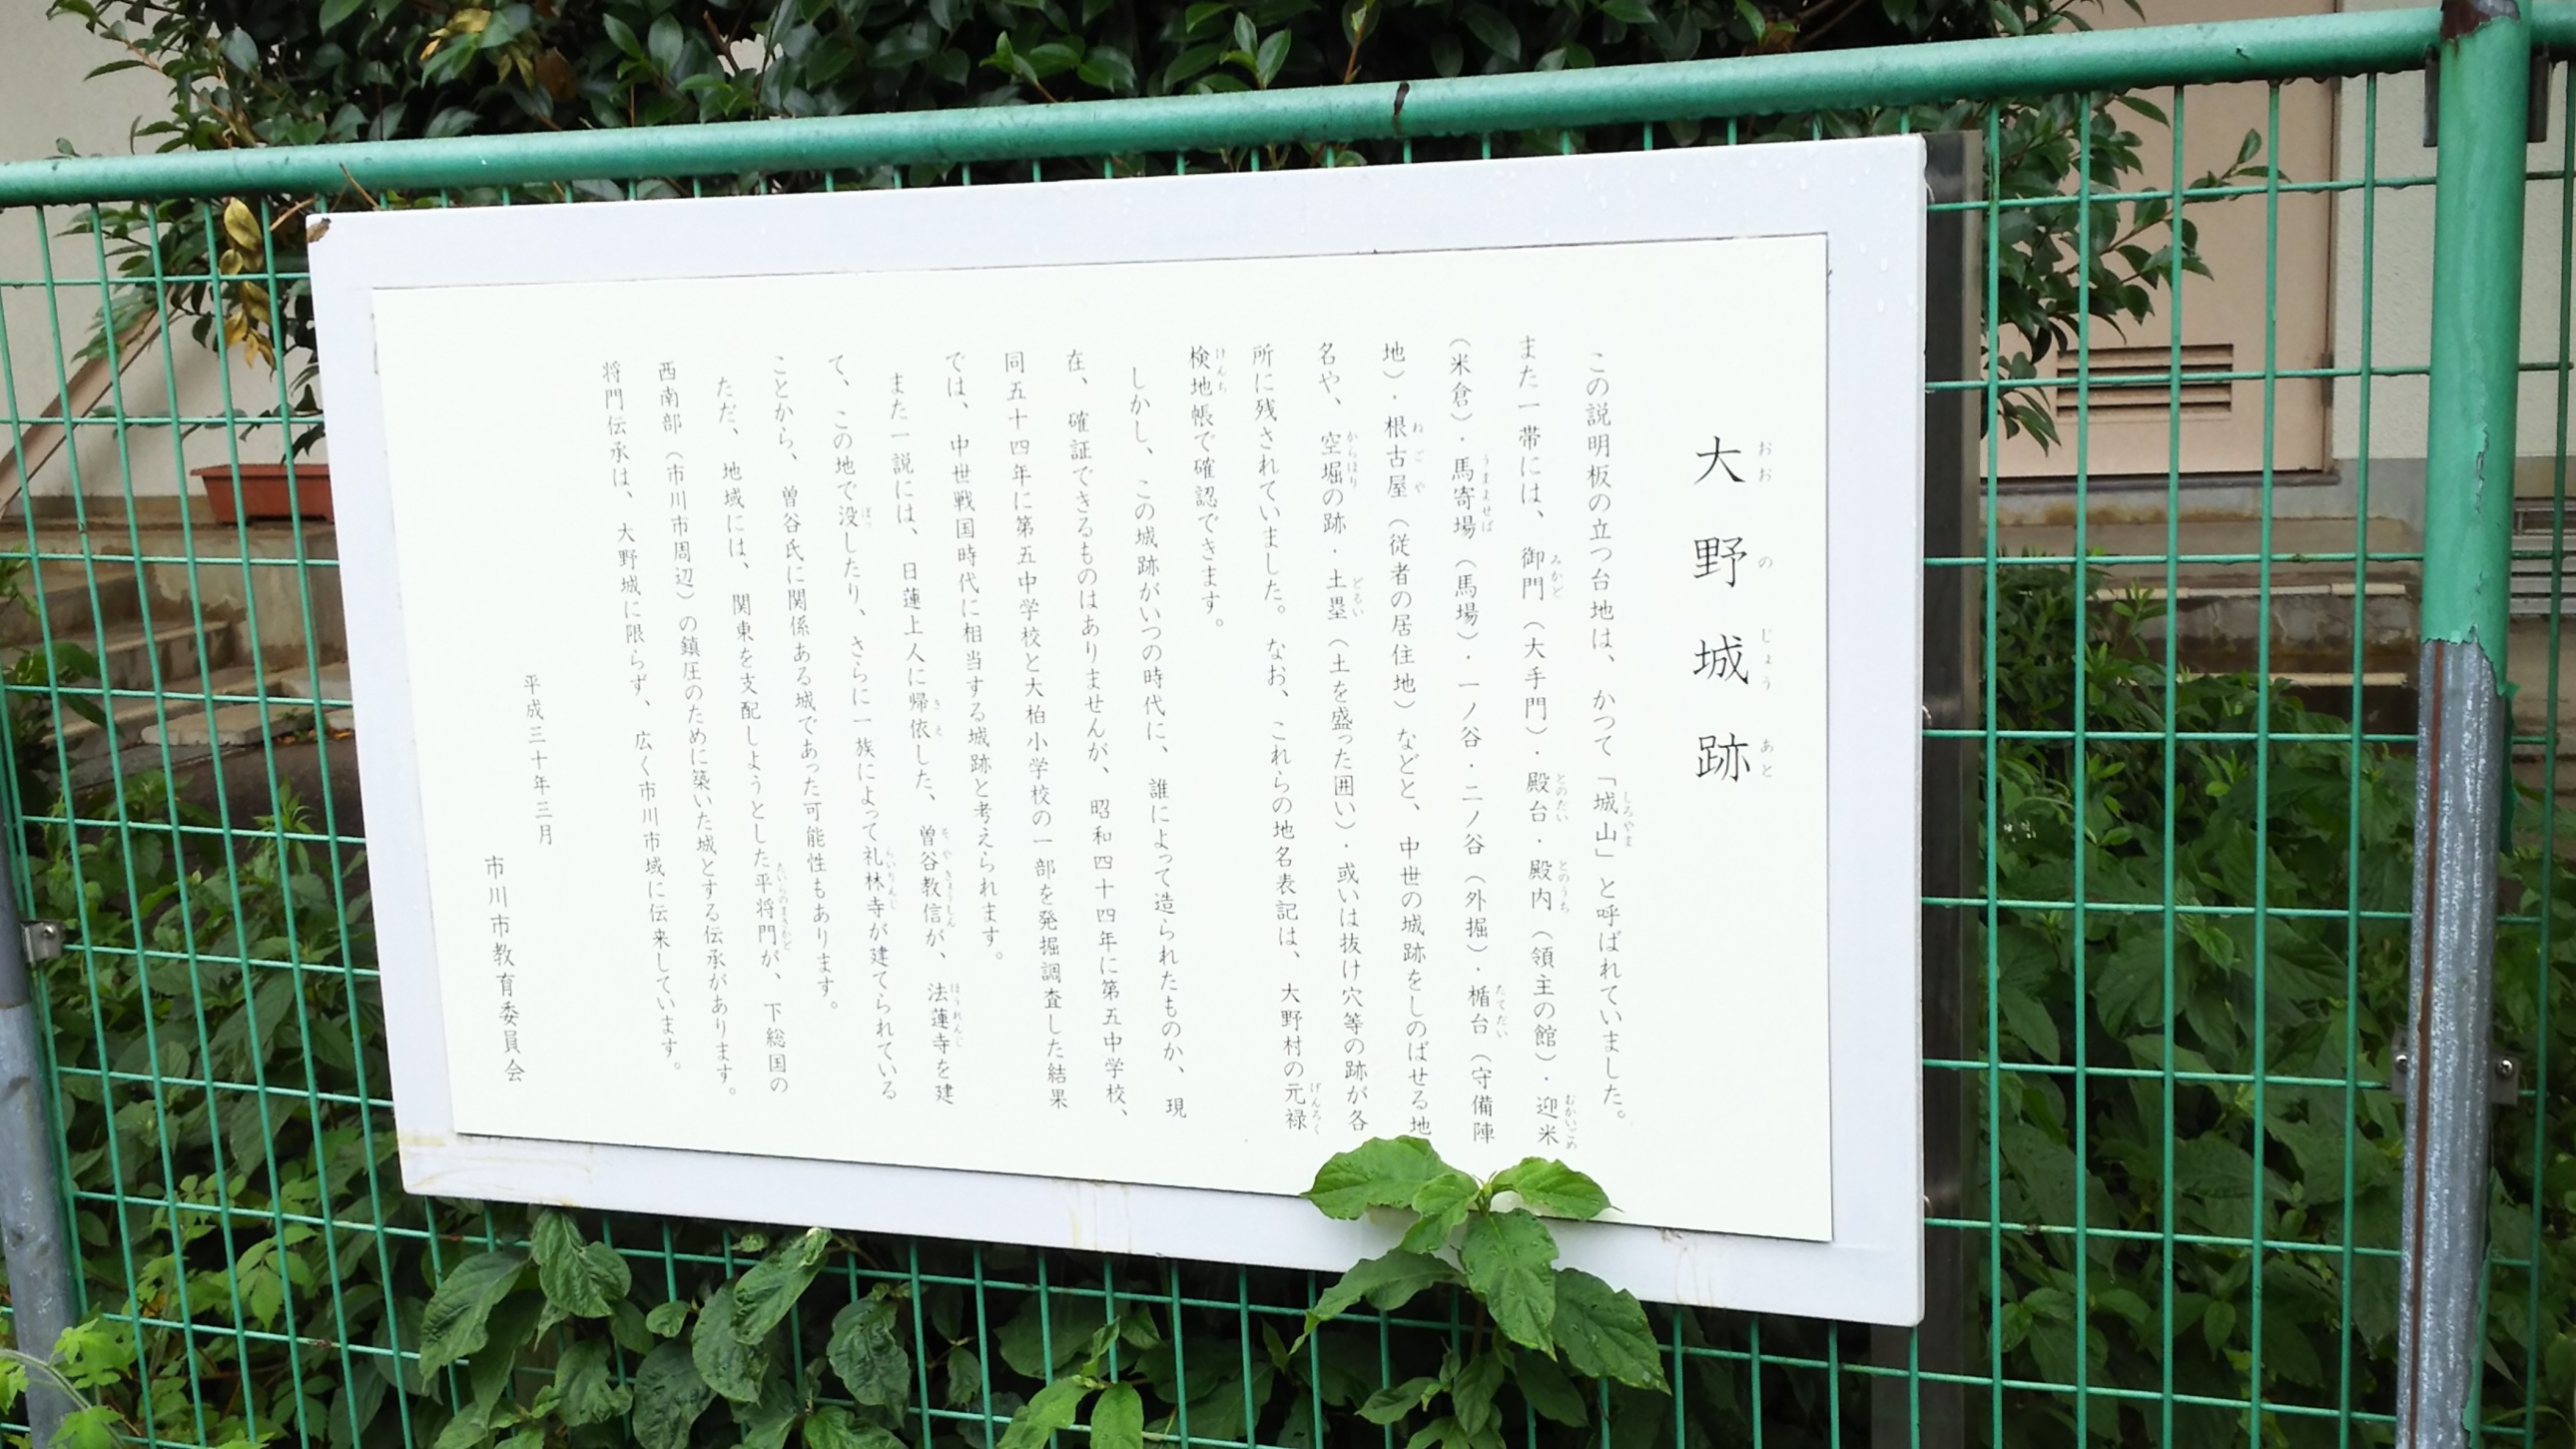 大野城跡
この説明板の立つ台地は、かつて「城山」と呼ばれていました。
また一帯には、御門（大手門）・殿台・殿内（領主の館）・迎米
（米倉）・馬寄場（馬場）・一ノ谷・二ノ谷（外掘）・楯台（守備陣
地）・根古屋（従者の居住地）などと、中世の城跡をしのばせる地
名や、空堀の跡・土塁（土を盛った囲い）・或いは抜け穴等の跡が各
所に残されていました。なお、これらの地名表記は、大野村の元禄
検地帳で確認できます。
しかし、この城跡がいつの時代に、誰によって造られたものか、現
在、確証できるものはありませんが、昭和四十四年に第五中学校、
同五十四年に第五中学校と大柏小学校の一部を発掘調査した結果
では、中世戦国時代に相当する城跡と考えられます。
また一説には、日蓮上人に帰依した、曽谷教信が、法蓮寺を建
て、この地で没したり、さらに一族によって礼林寺が建てられている
ことから、曽谷氏に関係ある城であった可能性もあります。
ただ、地域には、関東を支配しようとした平将門が、下総国の
西南部（市川市周辺）の鎮圧のために築いた城とする伝承があります。
将門伝承は、大野城に限らず、広く市川市域に伝来しています。
平成三十年三月
市川市教育委員会